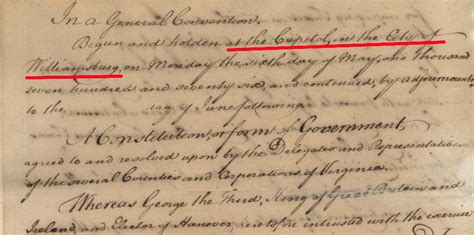 In a General Convention.
Begun and holden at the Capitol, in the City of
Williamsburg, on Monday the sixth day of May, one thousand
seven hundred and seventy six, and continued, by adjournments
to the day of June following.
A Constitution, or form of Government,
agreed to and resolved upon by the Delegates and Representatives
of the several Counties and Corporations of Virginia.
Whereas George the Third, King of Great Britain and
Ireland, and Elector of Hanover, heretofore intrusted with the exercise